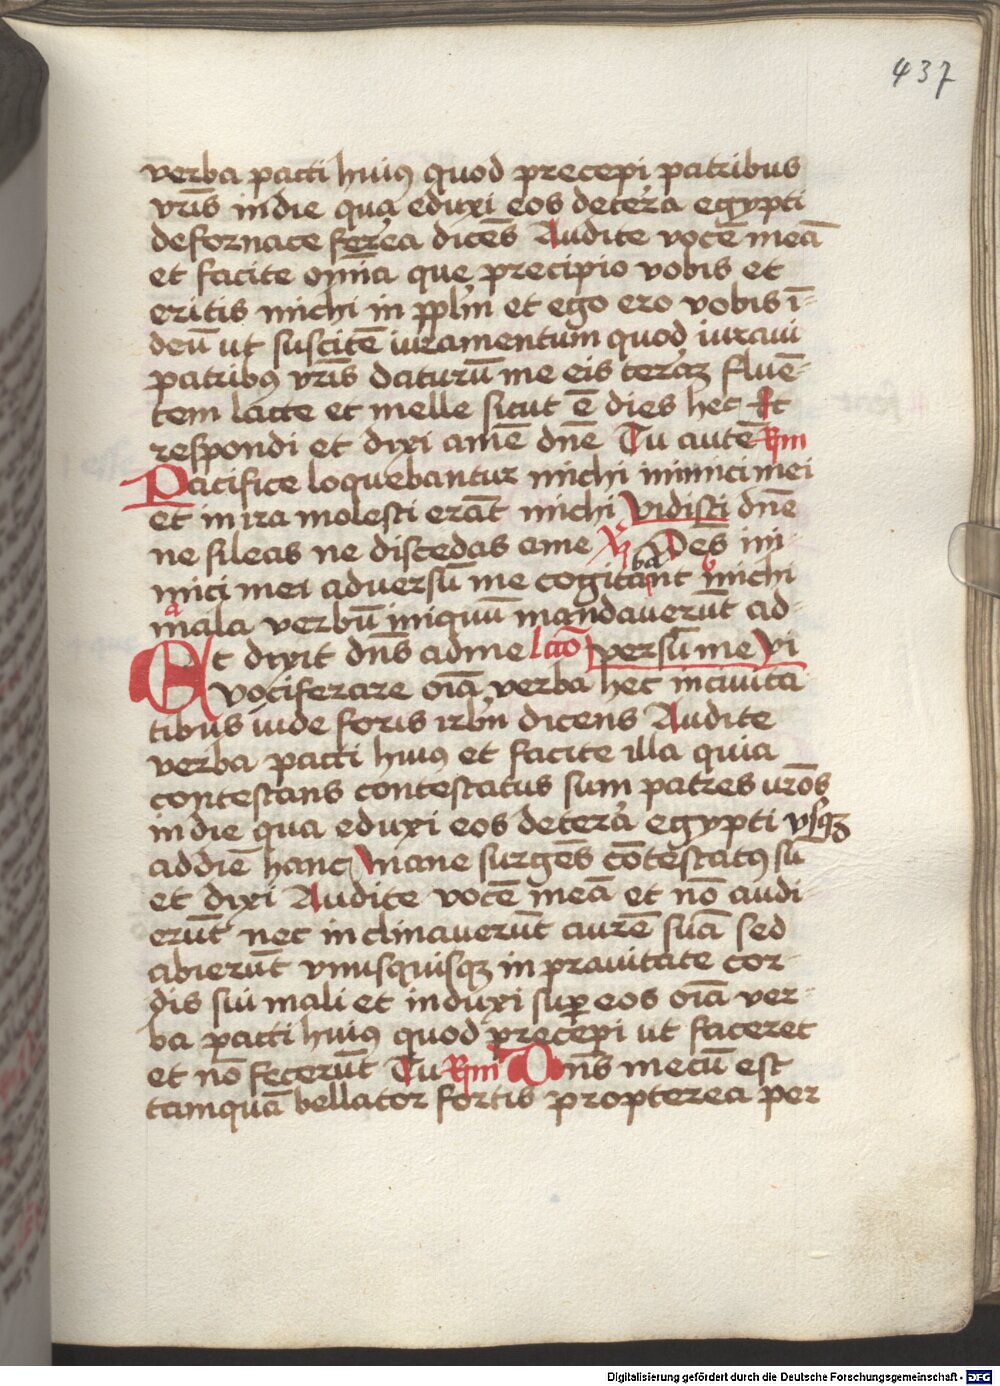 437
verba pacti huiꝰ quod precepi patribus
vr̄is in die qua eduxi eos de terra egypti
de fornace ferrea dicēs Audite vocē meā
et facite om̄ia que precipio vobis et
eritis michi in pp̄lm et ego ero vobis ī-
deū ut suscitē iuramentum quod iuraui
patribꝰ vr̄is daturū me eis terrāꝫ fluē-
tem lacte et melle sicut ē dies hec Et
respondi et dixi amē dn̄e Tu autē Rm
Pacifice loquebantur michi inimici mei
et in ira molesti erāt michi Vidisti dn̄e
ne sileas ne discedas a me Oēs ini-
mici mei adversū me cogitabant michi
mala verbū iniquū mandaverūt ad-
Et dixit dn̄s ad me lcio versū me vi
vociferare oīa verba hec in ciuita
tibus iude foris irlm̄ dicens Audite
verba pacti huiꝰ et facite illa quia
contestans contestatus sum patres vrōs
in die qua eduxi eos de terra egypti vsqꝫ
ad diē hanc Mane surgēs cōtestatꝰ sū
et dixi Audite vocē meā et nō audi
erūt nec inclinauerūt aurē suā sed
abierūt vnusquisqꝫ in prauitate cor-
dis sui mali et induxi suꝑ eos oīa ver-
ba pacti huiꝰ quod precepi ut faceret
et nō fecerūt Tu Rm Dn̄s mecū est
tamquā bellator fortis propterea per
Digitalisierung gefördert durch die Deutsche Forschungsgemeinschaft - DFG